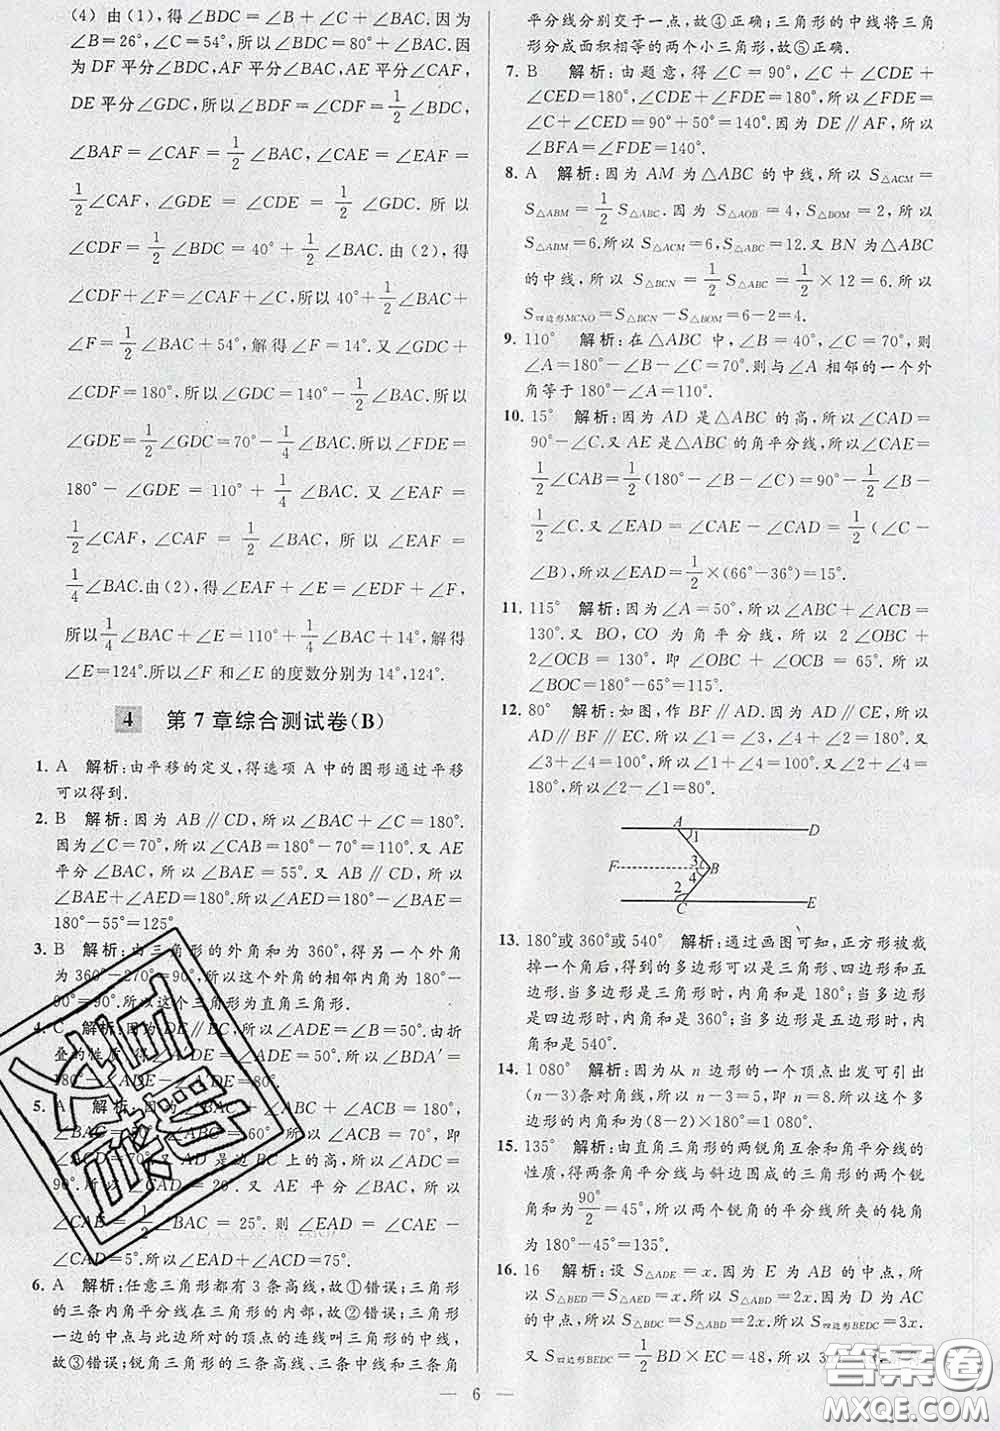 (4) 由(1),得∠BDC=∠B+∠BAC. 因为
∠B=26°,∠C=54°,所以∠BDC=80°+∠BAC. 因
为 DF 平分∠BDC,AF 平分∠BAC,AE 平分∠CAF,
DE 平分∠GDC,所以∠BDF=∠CDF=1/2∠BDC,
∠BAF=∠CAF=1/2∠BAC,∠CAE=∠EAF=
1/2∠CAF,∠GDE=∠CDE=1/2∠GDC. 所以
∠CDF=1/2∠BDC=40°+1/2∠BAC. 由(2),得
∠CDF+∠F=∠CAF+∠C,所以 40°+1/2∠BAC+
∠F=1/2∠BAC+54°,解得∠F=14°. 又∠GDC+
∠CDF=180°,所以∠GDC=140°-1/2∠BAC. 所以
∠GDE=1/2∠GDC=70°-1/4∠BAC. 所以∠FDE=
180°-∠GDE=110°+1/4∠BAC. 又∠EAF=
1/2∠CAF,∠CAF=1/2∠BAC,所以∠EAF=
1/4∠BAC. 由(2),得∠EAF+∠E=∠EDF+∠F,
所以1/4∠BAC+∠E=110°+1/4∠BAC+14°,解得
∠E=124°. 所以∠F 和∠E 的度数分别为 14°,124°.
4 第 7 章综合测试卷(B)
1. A 解析:由平移的定义,得选项 A 中的图形通过平移
可以得到.
2. B 解析:因为 AB∥CD,所以∠BAC+∠C=180°.
因为∠C=70°,所以∠CAB=180°-70°=110°. 又 AE
平分∠BAC,所以∠BAE=55°. 又 AB∥CD,所以
∠BAE+∠AED=180°. 所以∠AED=180°-∠BAE=
180°-55°=125°.
3. B 解析:由三角形的外角和为 360°,得另一个外角
为 360°-270°=90°,所以这个外角的相邻内角为 180°-
90°=90°. 所以这个三角形为直角三角形.
4. C 解析:因为 DE∥BC,所以∠ADE=∠B=50°. 由折
叠的性质,得∠A′DE=∠ADE=50°. 所以∠BDA′=
180°-∠A′DE-∠ADE=80°.
5. A 解析:因为∠ABC+∠ACB+∠BAC=180°,
∠BAC=50°,∠ABC=60°,所以∠ACB=70°,即
∠ACD=70°. 又 AD 是边 BC 上的高,所以∠ADC=
90°. 所以∠CAD=20°. 又 AE 平分∠BAC,所以
∠CAE=1/2∠BAC=25°. 则∠EAD=∠CAE-
∠CAD=5°. 所以∠EAD+∠ACD=75°.
6. A 解析:任意三角形都有 3 条高线,故①错误;三角形
的三条内角平分线在三角形的内部,故②错误;三角形
一边的中点与此边所对的顶点的连线叫三角形的中线,
故③错误;锐角三角形的三条高线、三条中线和三条角
平分线分别交于一点,故④正确;三角形的中线将三角
形分成面积相等的两个小三角形,故⑤正确.
7. B 解析:由题意,得∠C=90°,∠C+∠CDE+
∠CED=180°,∠CDE+∠FDE=180°,所以∠FDE=
∠C+∠CED=90°+50°=140°. 因为 DE∥AF,所以
∠BFA=∠FDE=140°.
8. A 解析:因为 AM 为△ABC 的中线,所以 S△ACM=
S△ABM=1/2S△ABC. 因为 S△AOB=4,S△BOM=2,所以
S△ABM=6. 所以 S△ACM=6,S△ABC=12. 又 BN 为△ABC
的中线,所以 S△BCN=1/2S△ABC=1/2×12=6. 所以
S四边形MCNO=S△BCN-S△BOM=6-2=4.
9. 110° 解析:在△ABC 中,∠B=40°,∠C=70°,则
∠A=180°-∠B-∠C=70°. 则与∠A 相邻的一个外
角等于 180°-∠A=110°.
10. 15° 解析:因为 AD 是△ABC 的高,所以∠CAD=
90°-∠C. 又 AE 是△ABC 的角平分线,所以∠CAE=
1/2∠CAB=1/2(180°-∠B-∠C)=90°-1/2∠B-
1/2∠C. 又∠EAD=∠CAE-∠CAD=1/2(∠C-
∠B),所以∠EAD=1/2×(66°-36°)=15°.
11. 115° 解析:因为∠A=50°,所以∠ABC+∠ACB=
130°. 又 BO,CO 为角平分线,所以 2∠OBC+
2∠OCB=130°,即∠OBC+∠OCB=65°. 所以
∠BOC=180°-65°=115°.
12. 80° 解析:如图,作 BF∥AD. 因为 AD∥CE,所以
AD∥BF∥EC. 所以∠1=∠3,∠4+∠2=180°. 又
∠3+∠4=100°,所以∠1+∠4=100°,∠2+∠4=180°.
所以∠2-∠1=80°.
A D
1
F 3 B
4
2
C E
13. 180°或 360°或 540° 解析:通过画图可知,正方形被裁
掉一个角后,得到的多边形可以是三角形、四边形和五
边形. 当多边形是三角形时,内角和是 180°;当多边形
是四边形时,内角和是 360°;当多边形是五边形时,内
角和是 540°.
14. 1 080° 解析:因为从 n 边形的一个顶点出发可引出
(n-3)条对角线,所以 n-3=5,即 n=8. 所以这个多
边形的内角和为(8-2)×180°=1 080°.
15. 135° 解析:由直角三角形的两锐角互余和角平分线的
性质,得两条角平分线与斜边围成的三角形的两个锐
角和为90°/2=45°,所以两个锐角的平分线所夹的钝角
为 180°-45°=135°.
16. 16 解析:设 S△ADE=x. 因为 E 为 AB 的中点,所
以 S△BED=S△AED=x. 所以 S△ABD=2x. 因为 D 为 AC
的中点,所以 S△BDC=S△ABD=2x. 所以 S四边形BEDC=3x.
又 S四边形BEDC=1/2BD×EC=48,所以 3
— 6 —
答案圈
MXQE.COM